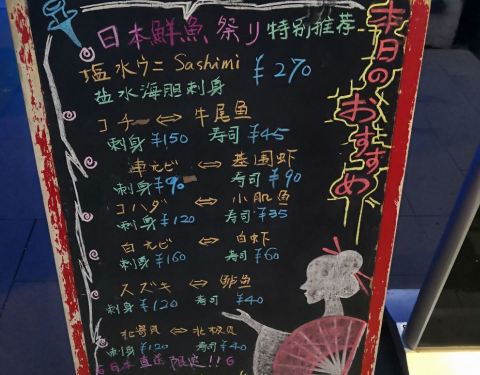 本日のおすすめ
日本鮮魚祭り特别推荐
塩水ウニ Sashimi ¥270
盐水海胆刺身
コチ ⇔ 牛尾鱼
刺身 ¥150 寿司 ¥45
車エビ ⇔ 基围虾
刺身 ¥90 寿司 ¥90
コハダ ⇔ 小肌鱼
刺身 ¥120 寿司 ¥35
白エビ ⇔ 白虾
刺身 ¥160 寿司 ¥60
スズキ ⇔ 鲈鱼
刺身 ¥120 寿司 ¥40
北寄貝 ⇔ 北极贝
刺身 ¥120 寿司 ¥40
日本直送 限定!!